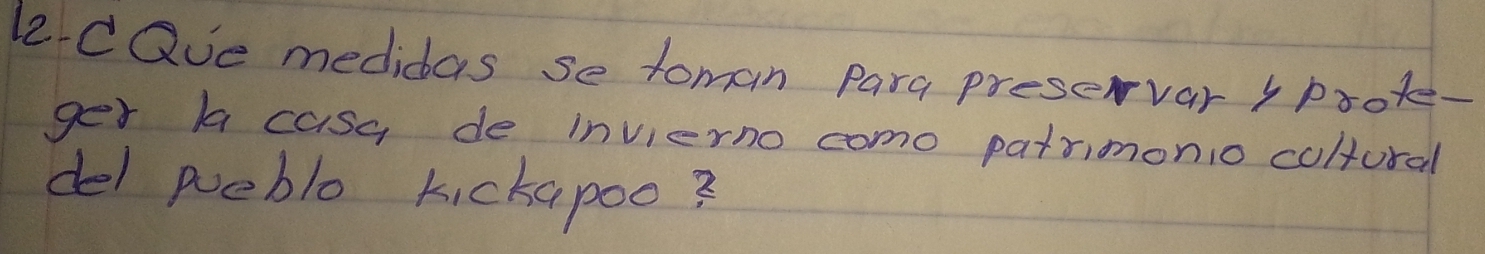 12.-¿Qúe medidas se toman para preservar y prote-
ger la casa de invierno como patrimonio cultural
del pueblo kickapoo?